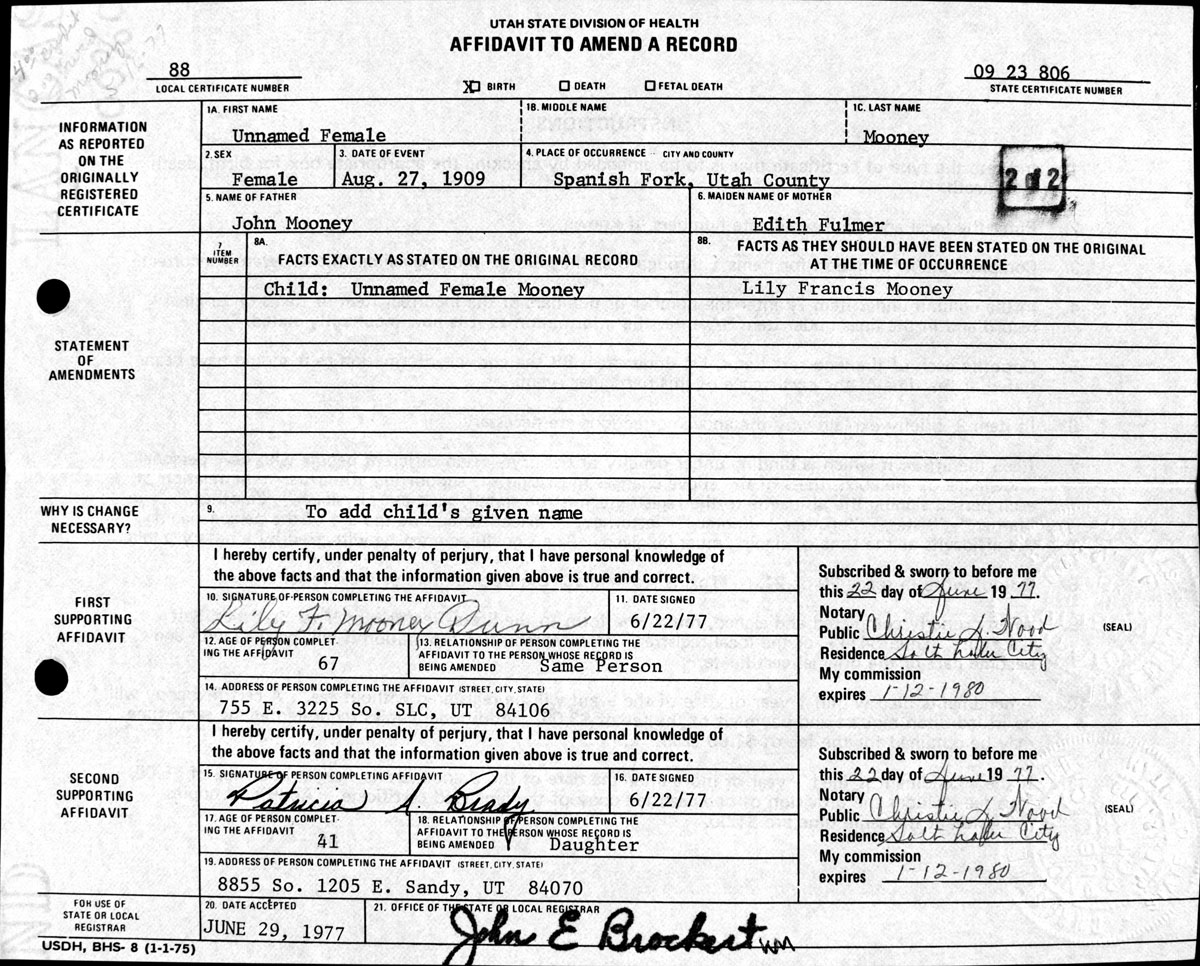 UTAH STATE DIVISION OF HEALTH
AFFIDAVIT TO AMEND A RECORD
88
LOCAL CERTIFICATE NUMBER
X BIRTH DEATH FETAL DEATH
09 23 806
STATE CERTIFICATE NUMBER
INFORMATION AS REPORTED ON THE ORIGINALLY REGISTERED CERTIFICATE
1A. FIRST NAME 1B. MIDDLE NAME 1C. LAST NAME
Unnamed Female Mooney
2. SEX 3. DATE OF EVENT 4. PLACE OF OCCURRENCE - CITY AND COUNTY
Female Aug. 27, 1909 Spanish Fork, Utah County
212
5. NAME OF FATHER 6. MAIDEN NAME OF MOTHER
John Mooney Edith Fulmer
STATEMENT OF AMENDMENTS
7 ITEM NUMBER
8A. FACTS EXACTLY AS STATED ON THE ORIGINAL RECORD
8B. FACTS AS THEY SHOULD HAVE BEEN STATED ON THE ORIGINAL
AT THE TIME OF OCCURRENCE
Child: Unnamed Female Mooney Lily Francis Mooney
WHY IS CHANGE NECESSARY?
9. To add child's given name
FIRST SUPPORTING AFFIDAVIT
I hereby certify, under penalty of perjury, that I have personal knowledge of
the above facts and that the information given above is true and correct.
10. SIGNATURE OF PERSON COMPLETING THE AFFIDAVIT 11. DATE SIGNED
Lily F. Mooney Dunn 6/22/77
12. AGE OF PERSON COMPLETING THE AFFIDAVIT 67
13. RELATIONSHIP OF PERSON COMPLETING THE
AFFIDAVIT TO THE PERSON WHOSE RECORD IS
BEING AMENDED Same Person
14. ADDRESS OF PERSON COMPLETING THE AFFIDAVIT (STREET, CITY, STATE)
755 E. 3225 So. SLC, UT 84106
Subscribed & sworn to before me
this 22 day of June 19 77.
Notary
Public Christie L. Wood
(SEAL)
Residence Salt Lake City
My commission
expires 1-12-1980
SECOND SUPPORTING AFFIDAVIT
I hereby certify, under penalty of perjury, that I have personal knowledge of
the above facts and that the information given above is true and correct.
15. SIGNATURE OF PERSON COMPLETING AFFIDAVIT 16. DATE SIGNED
Patricia A. Brady 6/22/77
17. AGE OF PERSON COMPLETING THE AFFIDAVIT 41
18. RELATIONSHIP OF PERSON COMPLETING THE
AFFIDAVIT TO THE PERSON WHOSE RECORD IS
BEING AMENDED Daughter
19. ADDRESS OF PERSON COMPLETING THE AFFIDAVIT (STREET, CITY, STATE)
8855 So. 1205 E. Sandy, UT 84070
Subscribed & sworn to before me
this 22 day of June 19 77.
Notary
Public Christie L. Wood
(SEAL)
Residence Salt Lake City
My commission
expires 1-12-1980
FOR USE OF STATE OR LOCAL REGISTRAR
20. DATE ACCEPTED 21. OFFICE OF THE STATE OR LOCAL REGISTRAR
JUNE 29, 1977 John E Brockert WM
USDH, BHS- 8 (1-1-75)